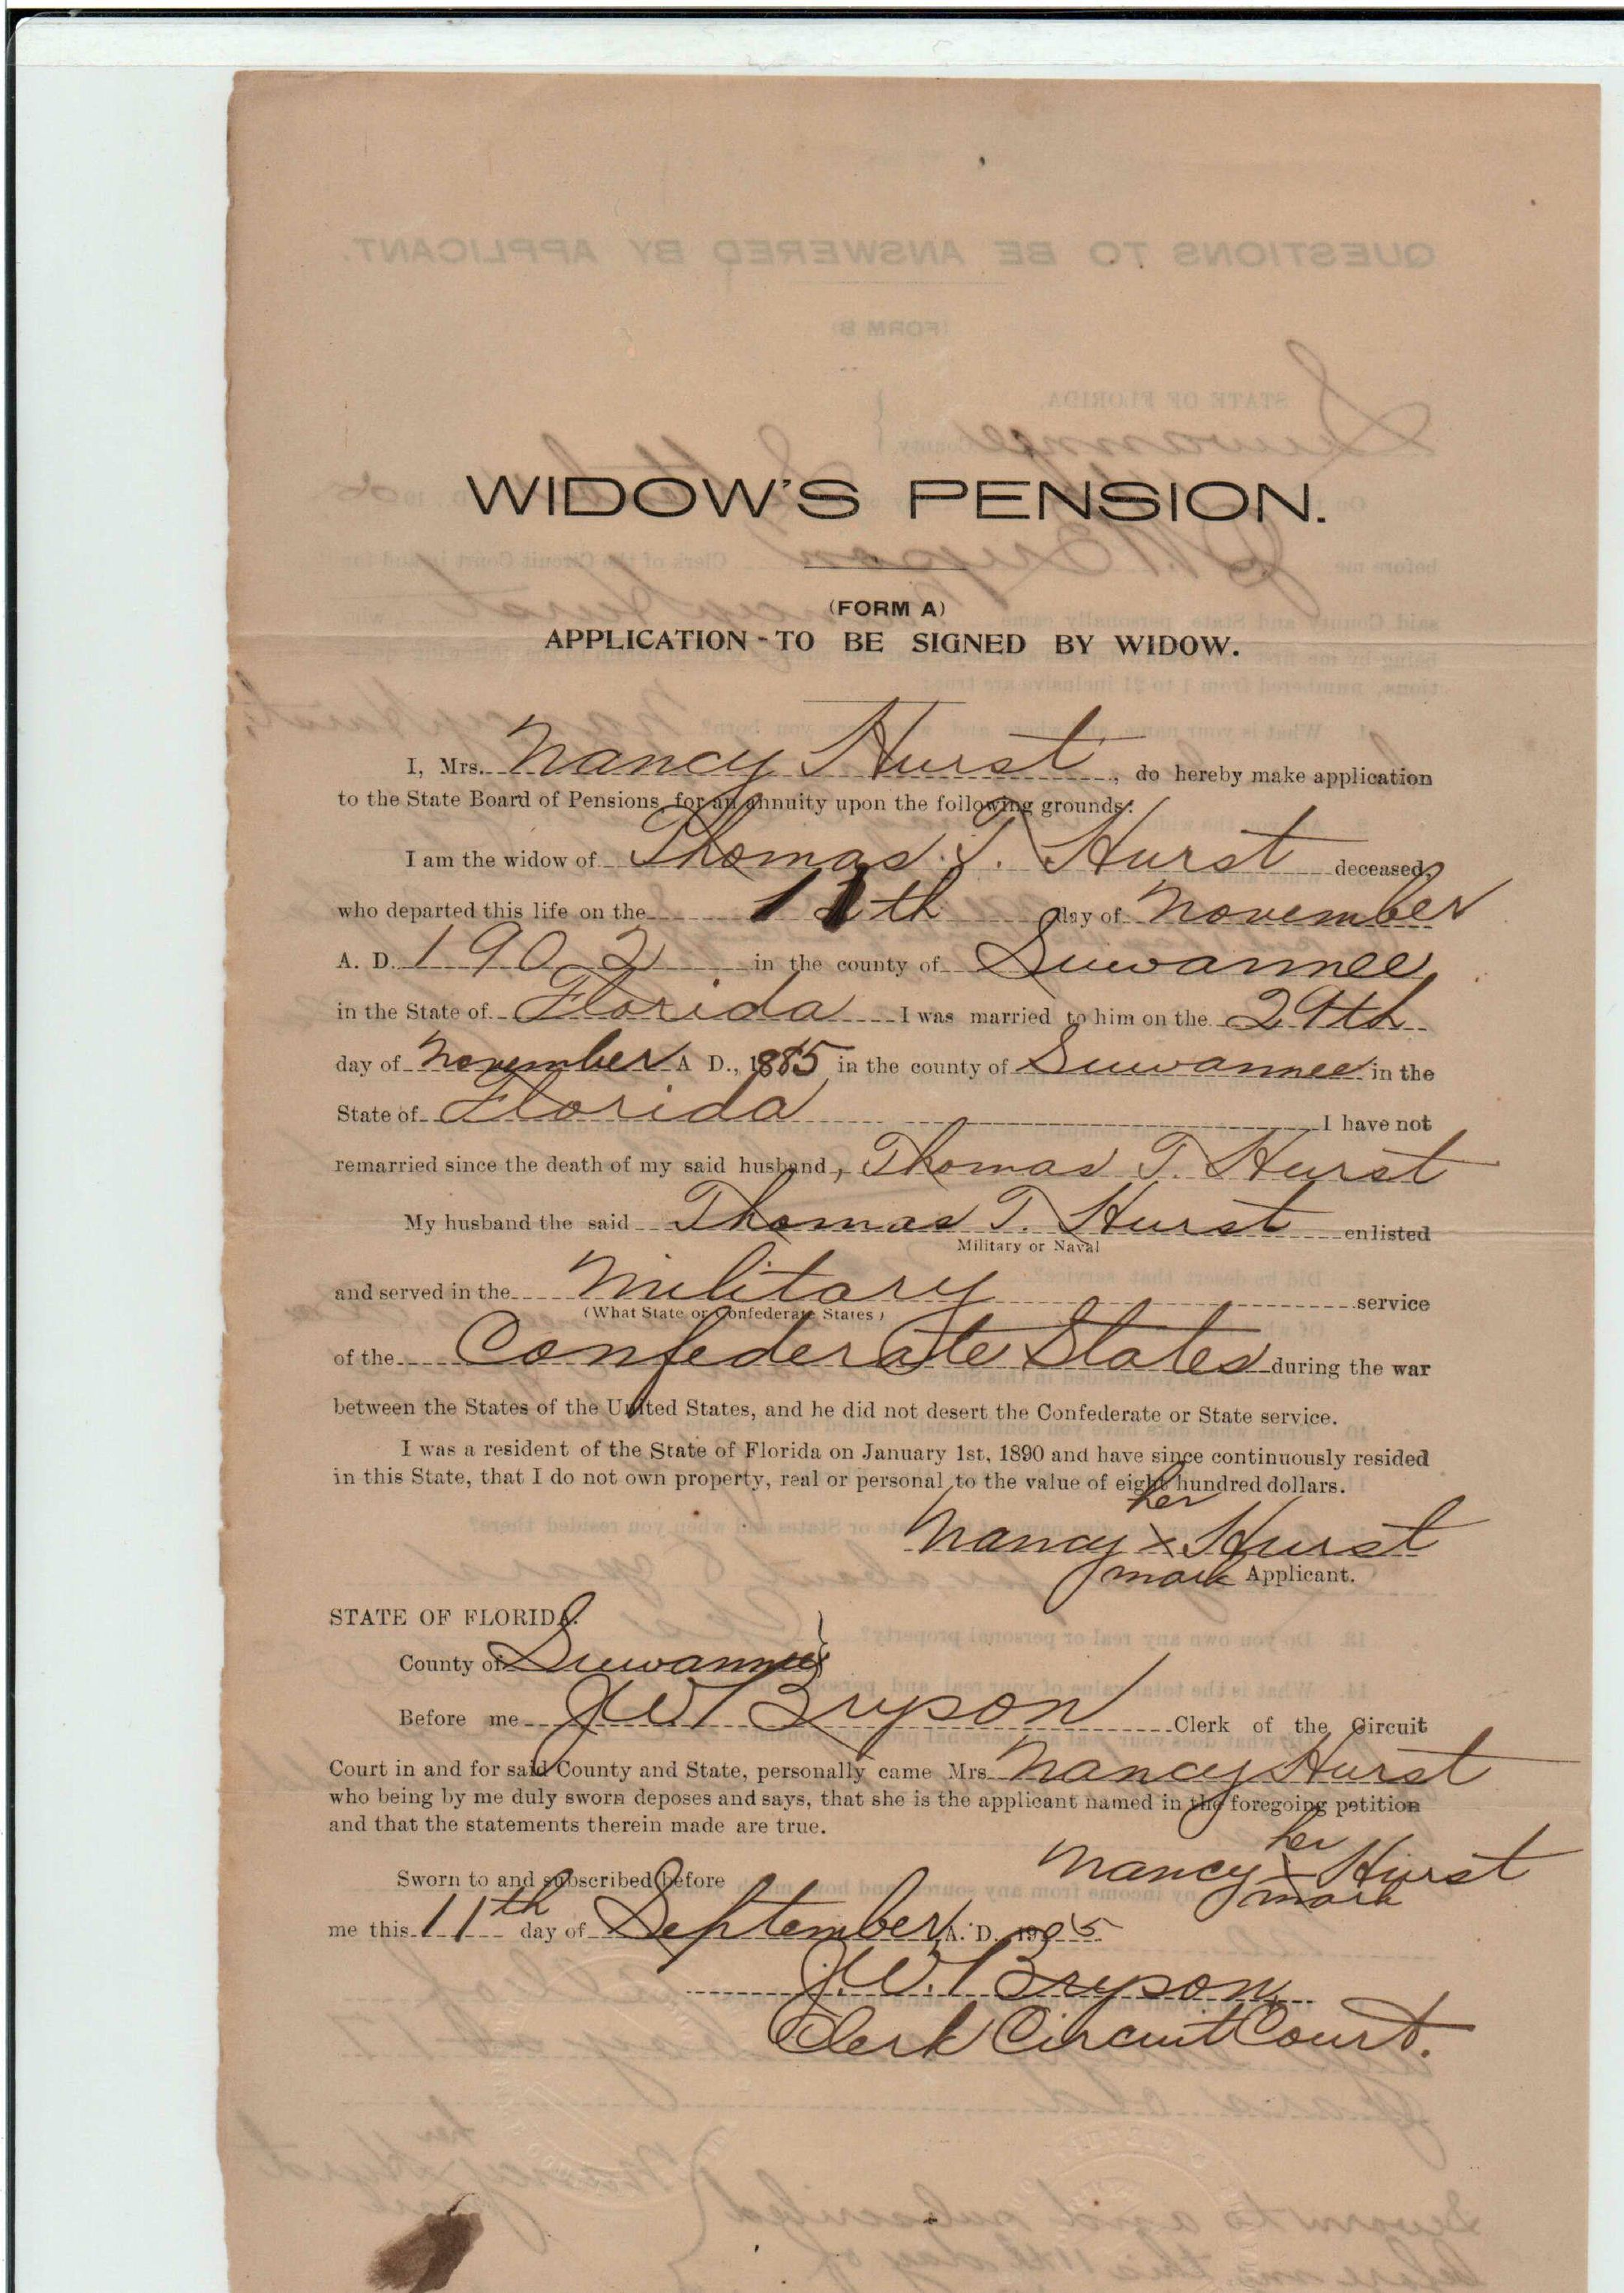 WIDOW'S PENSION.
(FORM A)
APPLICATION - TO BE SIGNED BY WIDOW.
I, Mrs. Nancy Hurst, do hereby make application
to the State Board of Pensions for an annuity upon the following grounds:
I am the widow of Thomas. T. Hurst deceased,
who departed this life on the 11th day of November
A. D. 1902 in the county of Suwannee
in the State of Florida I was married to him on the 29th
day of November A D., 1885 in the county of Suwannee in the
State of Florida I have not
remarried since the death of my said husband, Thomas T. Hurst
My husband the said Thomas T. Hurst enlisted
Military or Naval
and served in the Military service
(What State or Confederate States)
of the Confederate States during the war
between the States of the United States, and he did not desert the Confederate or State service.
I was a resident of the State of Florida on January 1st, 1890 and have since continuously resided
in this State, that I do not own property, real or personal to the value of eight hundred dollars.
her
Nancy x Hurst
mark Applicant.
STATE OF FLORIDA.
County of Suwannee }
Before me J W Bryson Clerk of the Circuit
Court in and for said County and State, personally came Mrs. Nancy Hurst
who being by me duly sworn deposes and says, that she is the applicant named in the foregoing petition
and that the statements therein made are true.
her
Nancy x Hurst
mark
Sworn to and subscribed before
me this 11th day of September A. D. 1905
J. W. Bryson,
Clerk Circuit Court.